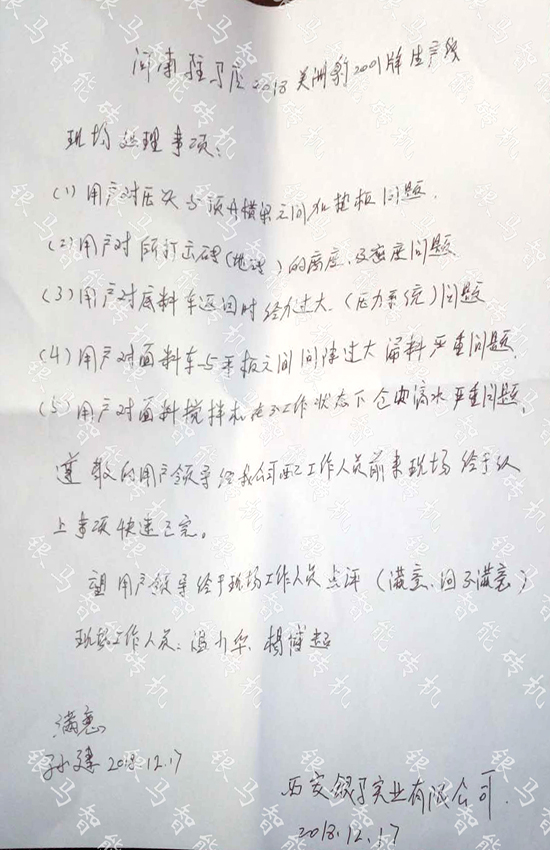 河南驻马店2018美洲豹2001牌生产线
现场处理事项：
(1) 用户对压头与顶A横梁之间加垫板问题.
(2) 用户对所打出砖(地砖)的密度、及密度问题
(3) 用户对底料车返回时给力过大.(压力系统)问题
(4) 用户对面料车与平板之间间隙过大漏料严重问题.
(5) 用户对面料搅拌机在工作状态下仓内滴水严重问题.
尊敬的用户领导经我公司配工作人员前来现场给予以
上事项快速已完。
望用户领导给予现场工作人员点评(满意、问不满意)
现场工作人员：温小华、杨博超
满意
孙建 2018.12.17
西安银马实业有限公司.
2018.12.17
银马智能砖机